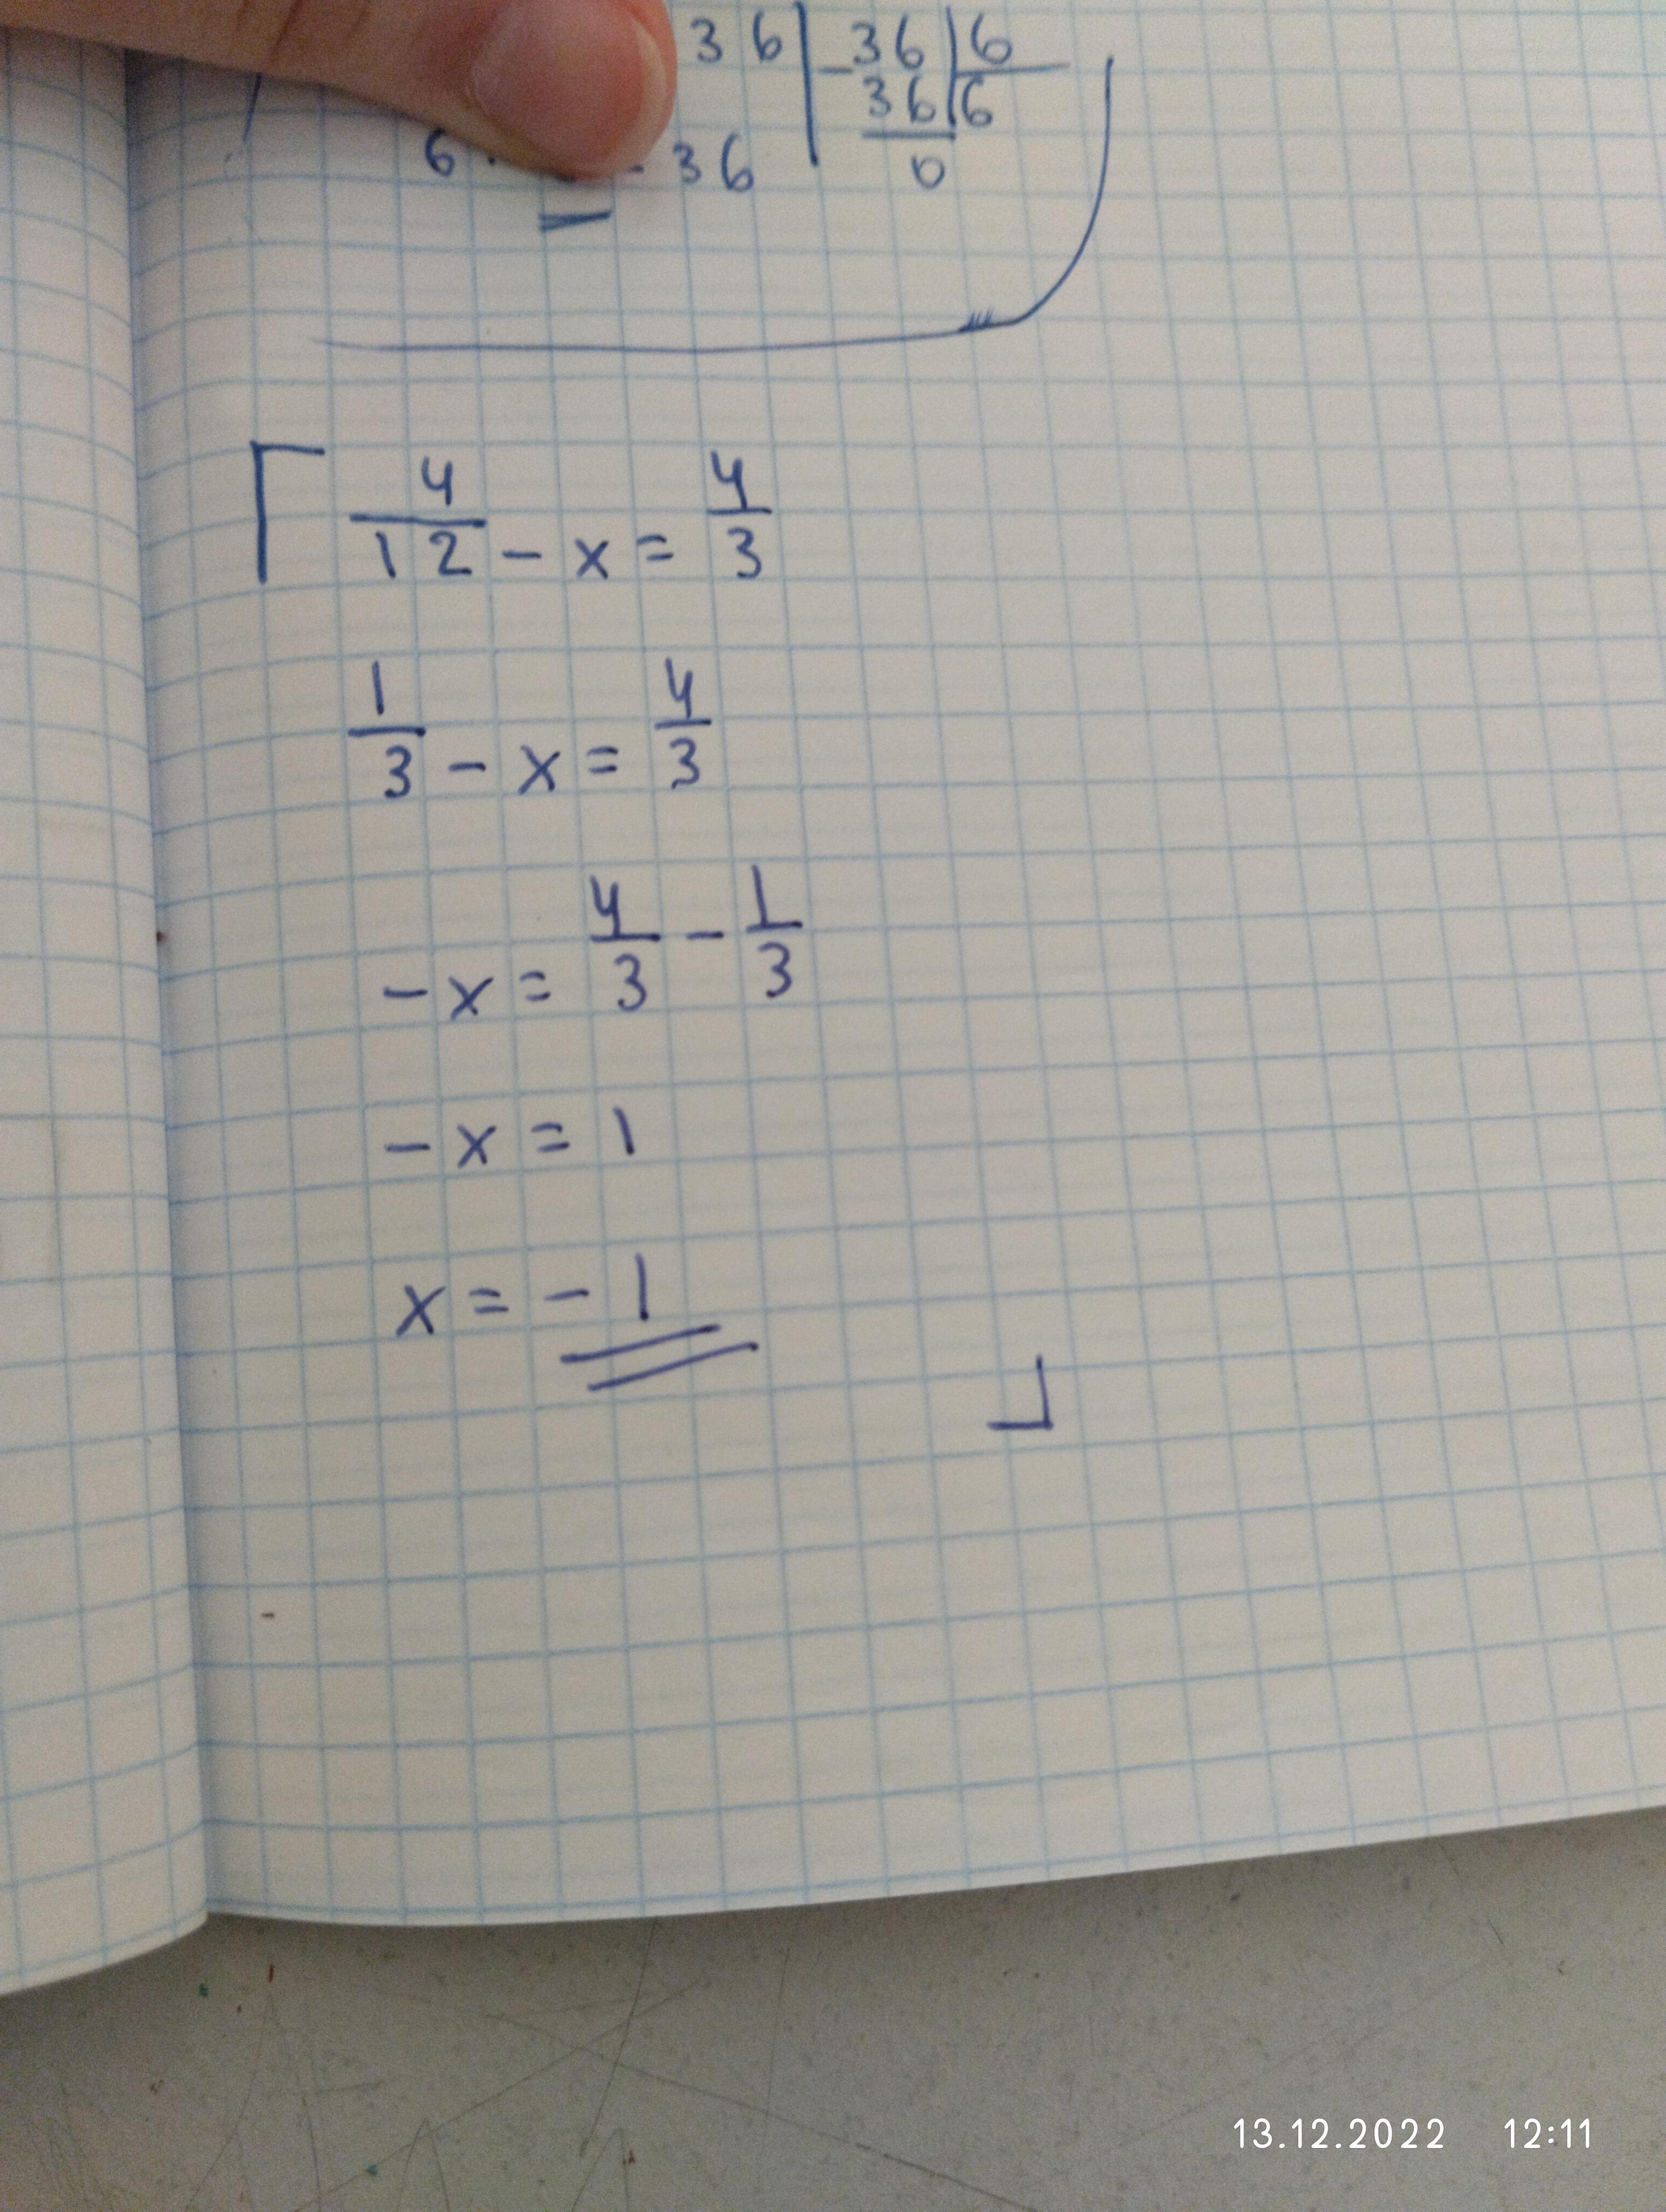 36 | -36 | 6
36 | 6
6 · - 36 0
4/12 - x = 4/3
1/3 - x = 4/3
-x = 4/3 - 1/3
-x = 1
x = -1
13.12.2022 12:11